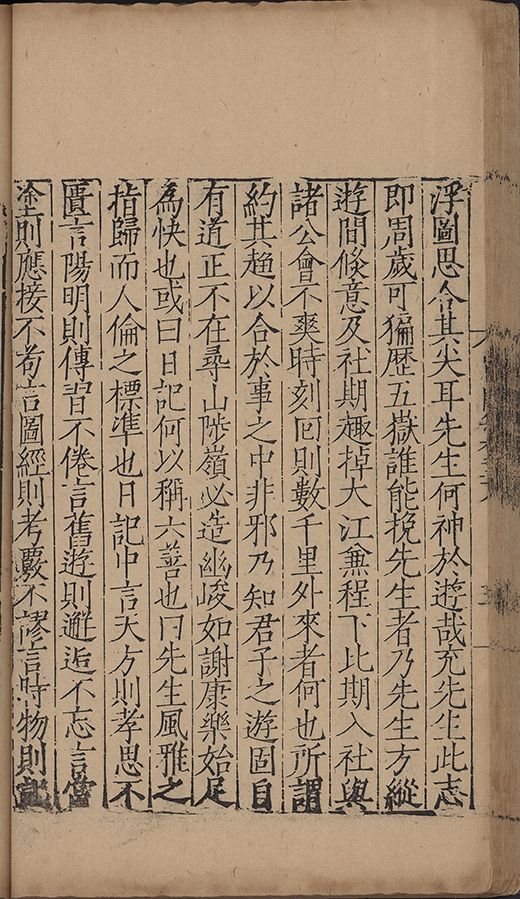 浮圖思合其尖耳先生何神於遊哉充先生此志
即周歲可徧歷五嶽誰能挽先生者乃先生方縱
遊間倐意及社期趣掉大江兼程下比期入社與
諸公會不爽時刻囘則數千里外來者何也所謂
約其趋以合於事之中非邪乃知君子之遊固自
有道正不在尋山陟嶺必造幽峻如謝康樂始足
為快也或曰日記何以稱六善也曰先生風雅之
指歸而人倫之標準也日記中言天方則孝思不
匱言陽明則傳習不倦言舊遊則邂逅不忘言當
塗則應接不茍言圖經則考覈不謬言時物則